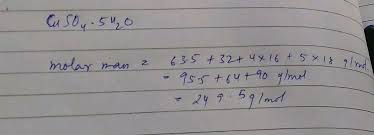 CuSO₄.5H₂O
molar mass = 63.5 + 32 + 4×16 + 5×18 g/mol
= 95.5 + 64 + 90 g/mol
= 249.5 g/mol